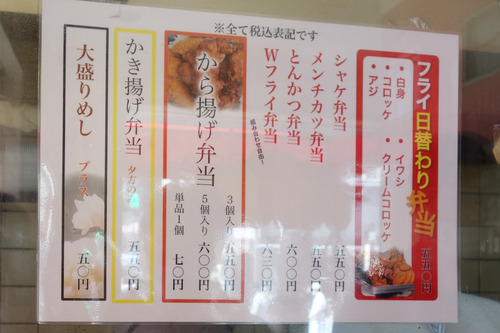 ※全て税込表記です
フライ日替わり弁当
・白身
・コロッケ
・アジ
・イワシ
・クリームコロッケ
五五〇円
シャケ弁当 五五〇円
メンチカツ弁当 五五〇円
とんかつ弁当 六〇〇円
Wフライ弁当 六三〇円
組み合わせ自由!
から揚げ弁当
3個入り 五五〇円
5個入り 六〇〇円
単品1個 七〇円
かき揚げ弁当
夕方の
五五〇円
大盛りめし
プラス 五〇円